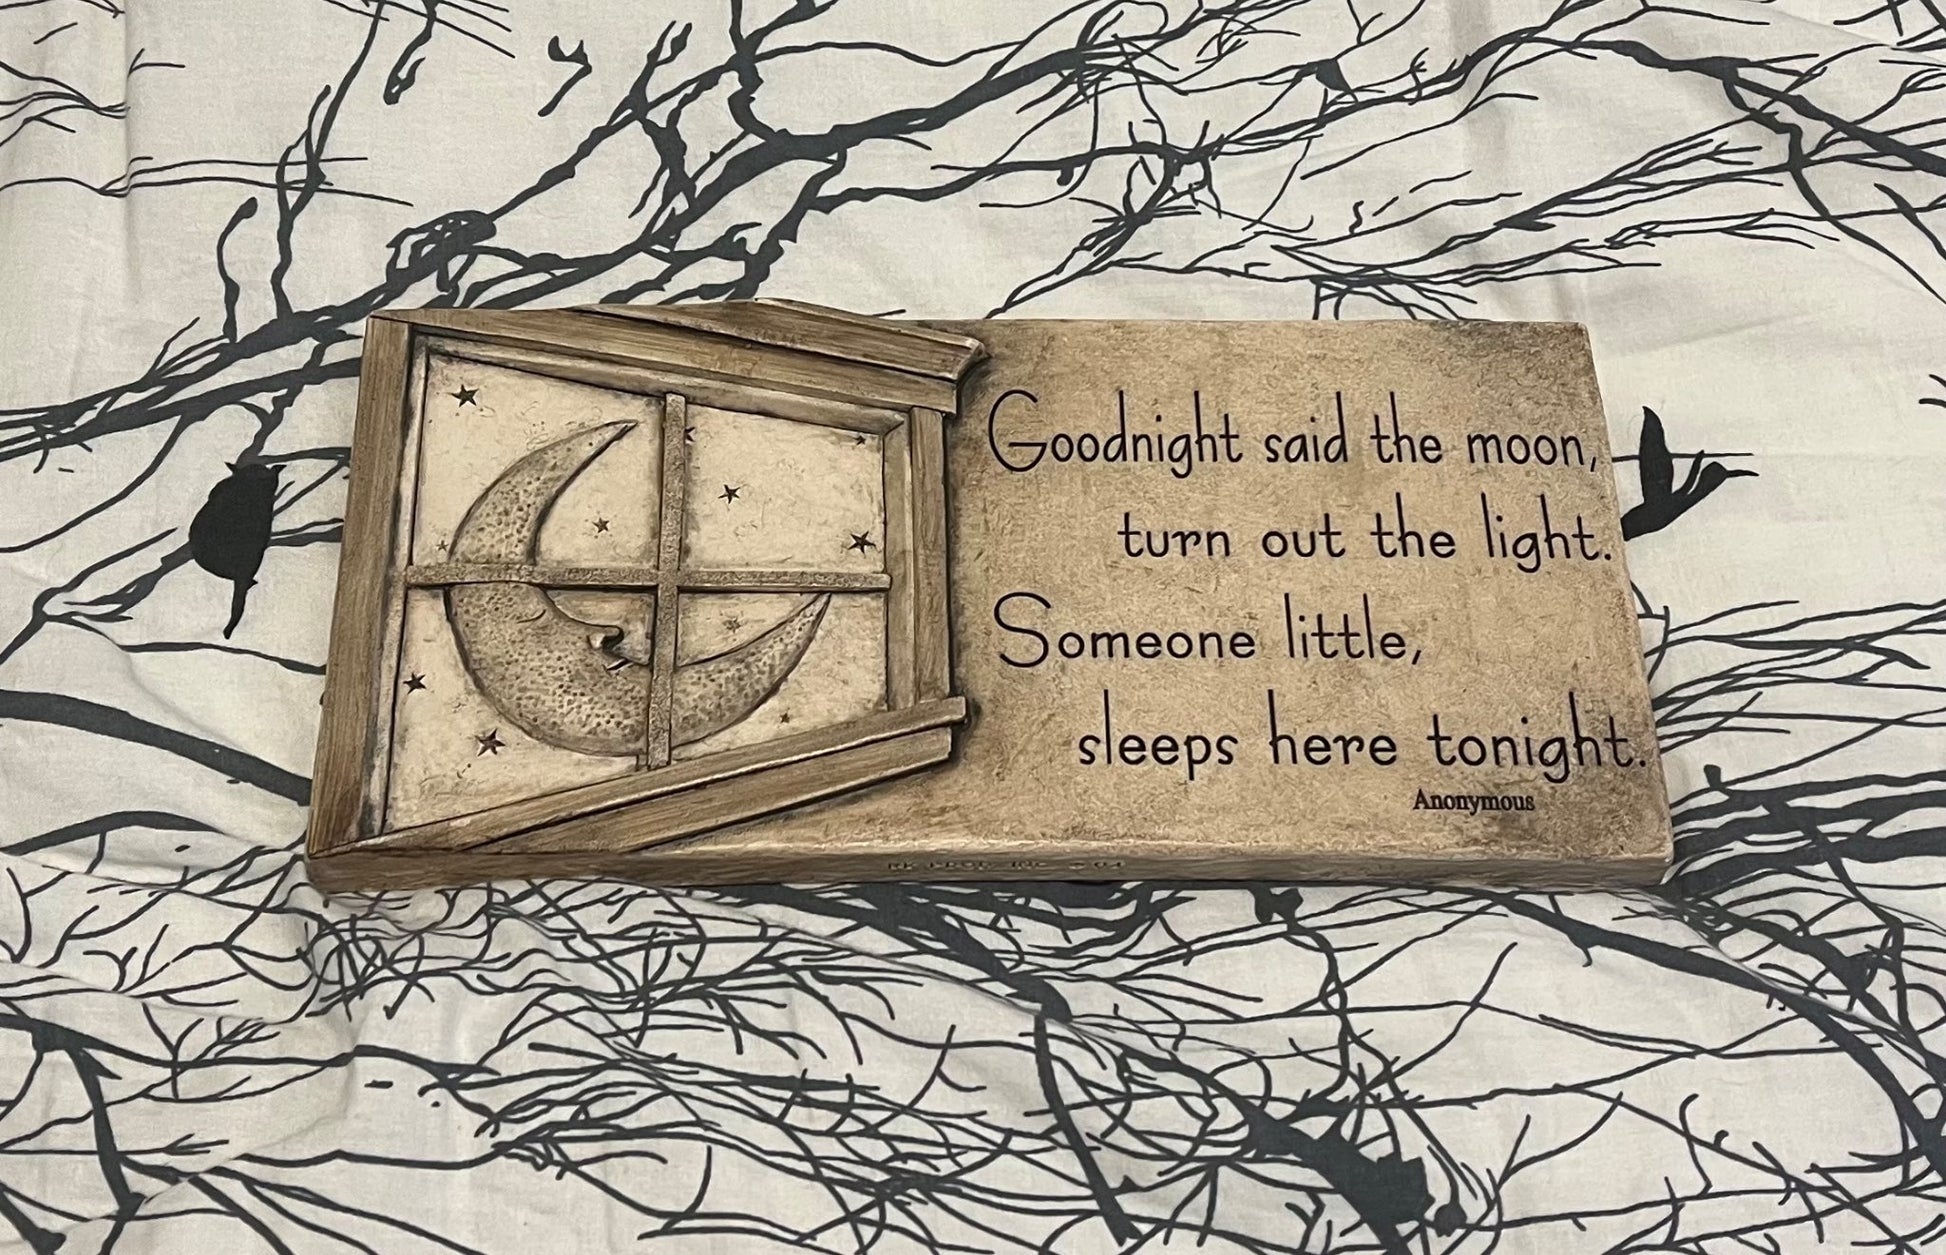 Goodnight said the moon,
turn out the light.
Someone little,
sleeps here tonight.
Anonymous